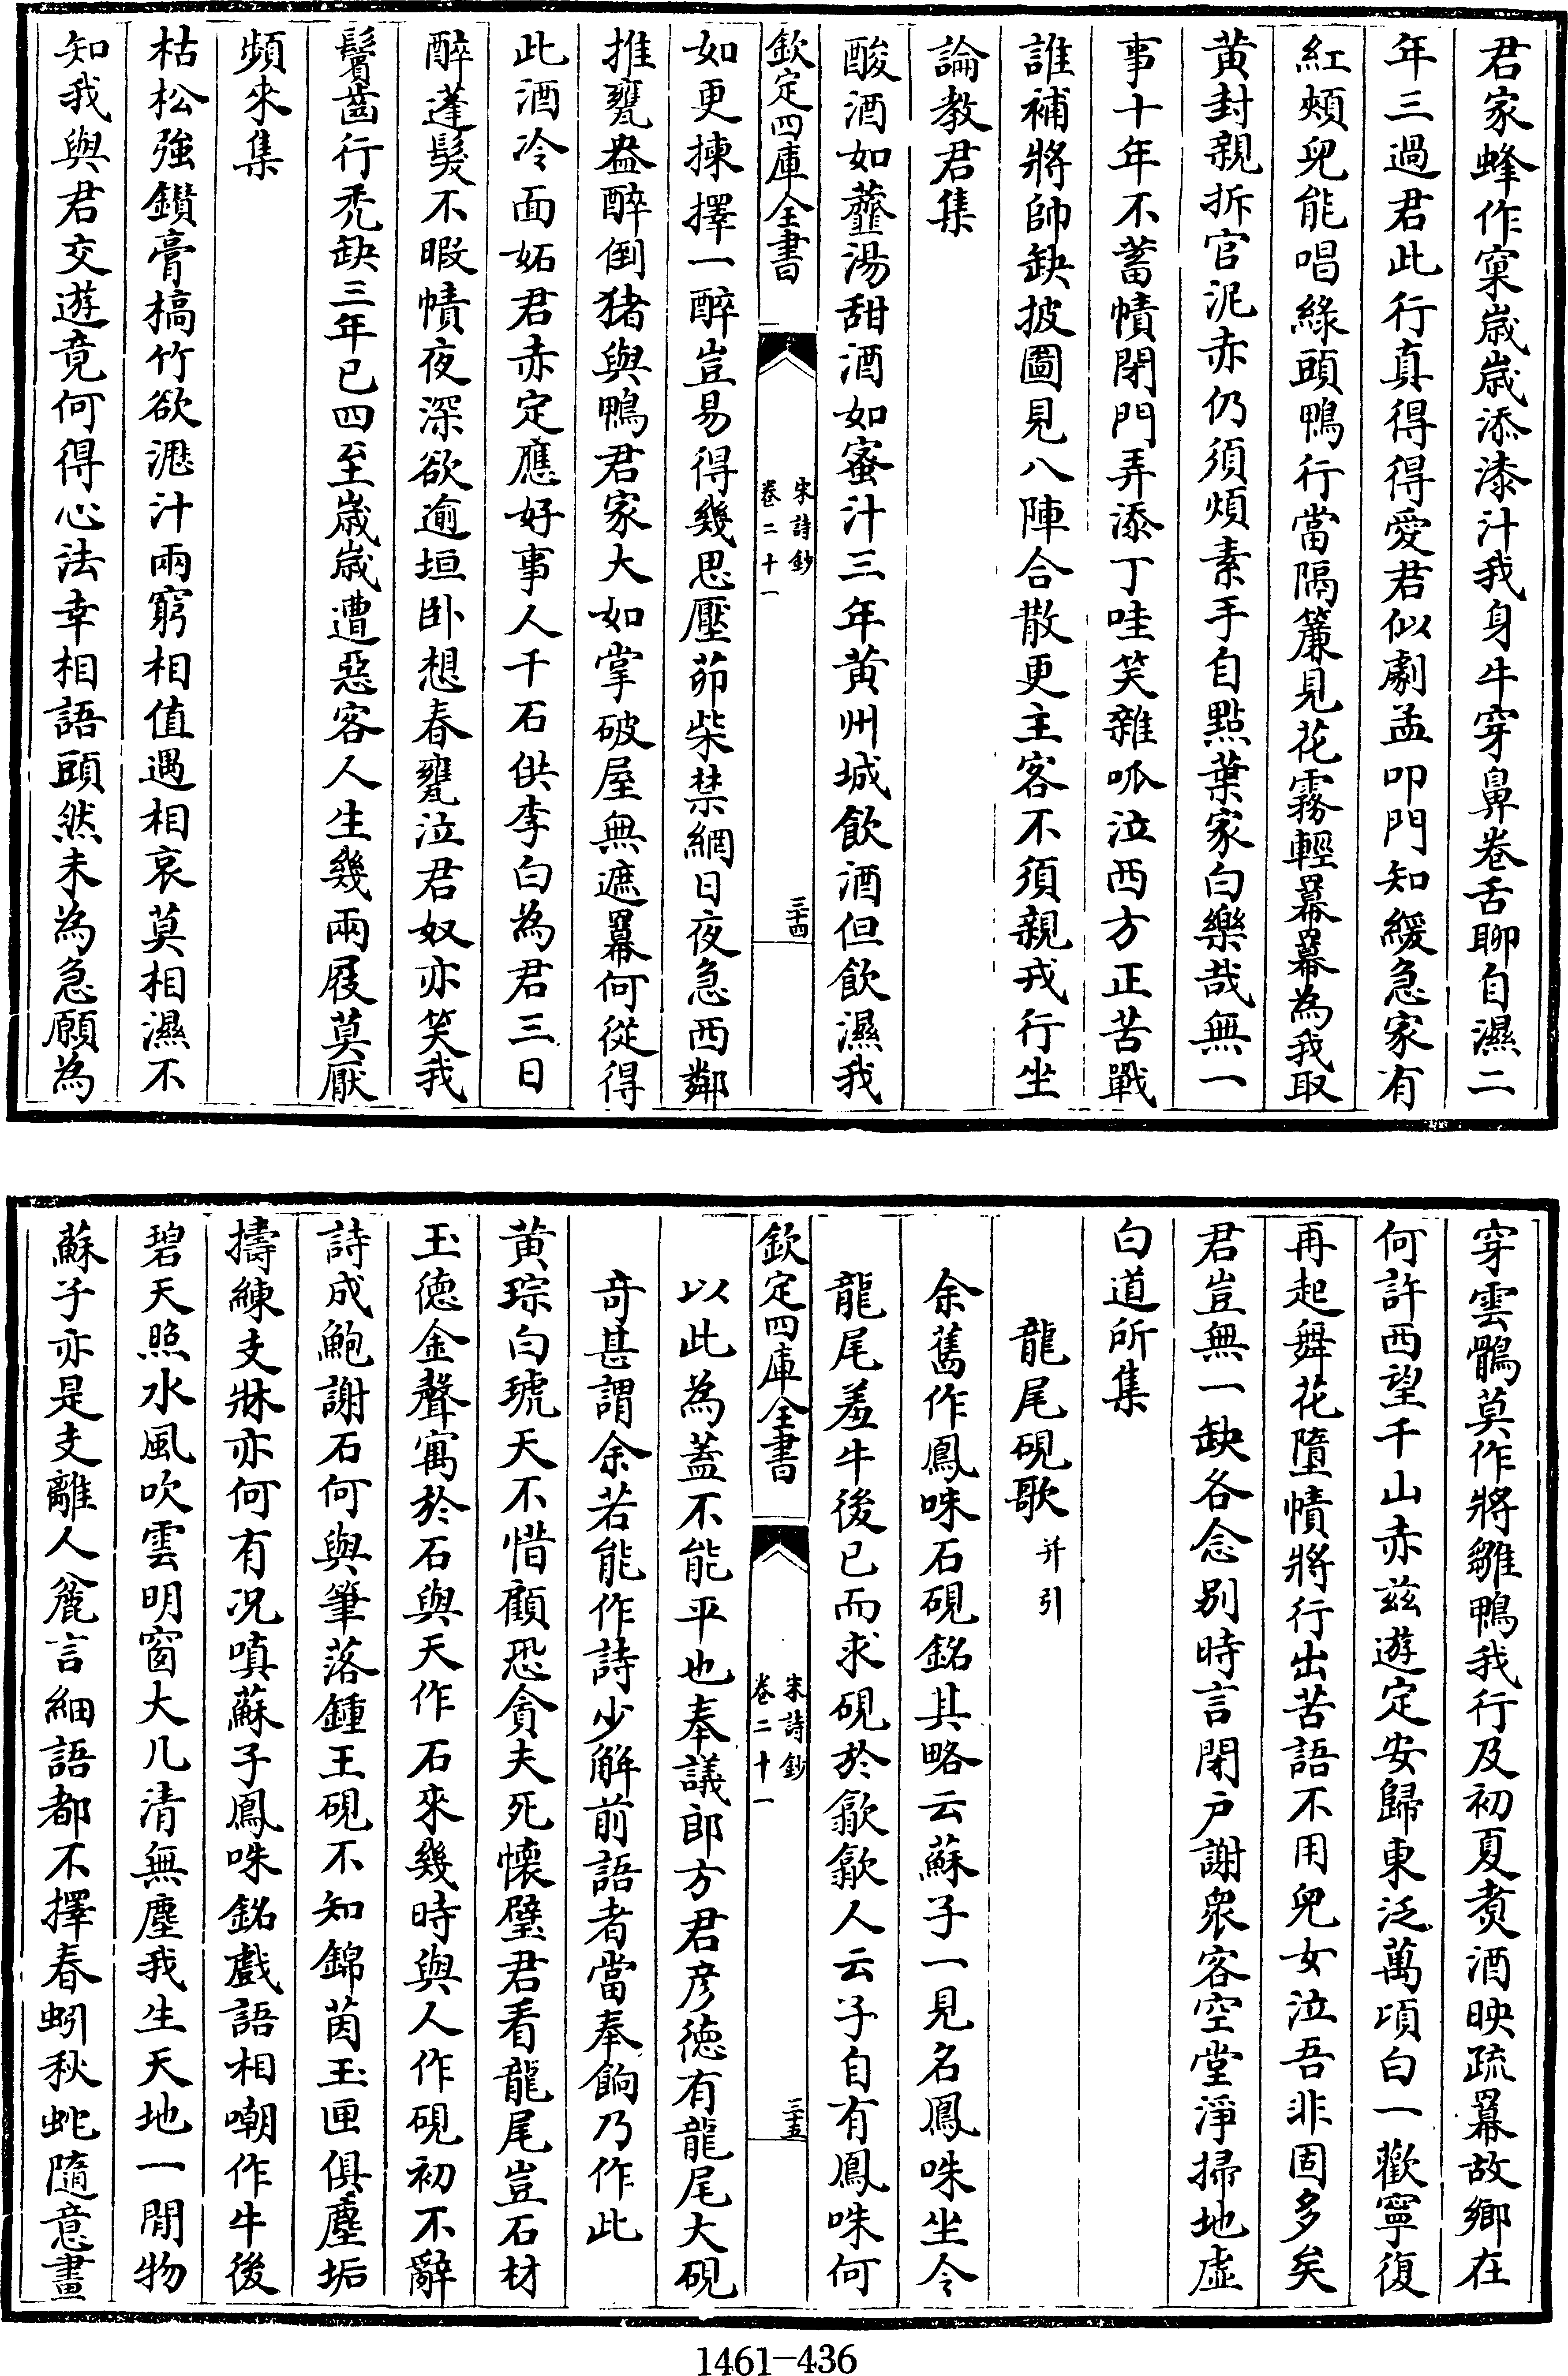 君家蜂作窠歲歲添漆汁我身牛穿鼻卷舌聊自濕二
年三過君此行真得得愛君似劇孟叩門知緩急家有
紅頰兒能唱緑頭鴨行當隔簾見花霧輕羃羃為我取
黄封親拆官泥赤仍須煩素手自點葉家白樂哉無一
事十年不蓄幘閉門弄添丁哇笑雜呱泣西方正苦戰
誰補將帥缺披圖見八陣合散更主客不須親戎行坐
論教君集
酸酒如虀湯甜酒如蜜汁三年黄州城飲酒但飲濕我
欽定四庫全書
宋詩鈔
卷二十一
三十四
如更揀擇一醉豈易得幾思壓茆柴禁網日夜急西鄰
推甕盎醉倒猪與鴨君家大如掌破屋無遮羃何從得
此酒冷面妬君赤定應好事人千石供李白為君三日
醉蓬髮不暇幘夜深欲逾垣卧想春甕泣君奴亦笑我
鬢齒行秃缺三年已四至歲歲遭惡客人生幾兩屐莫厭
頻來集
枯松強鑽膏槁竹欲瀝汁兩窮相值遇相哀莫相濕不
知我與君交遊竟何得心法幸相語頭然未為急願為
穿雲鶻莫作將雛鴨我行及初夏煑酒映疏羃故鄉在
何許西望千山赤兹遊定安歸東泛萬頃白一歡寧復
再起舞花墮幘將行出苦語不用兒女泣吾非固多矣
君豈無一缺各念别時言閉户謝衆客空堂淨掃地虚
白道所集
龍尾硯歌并引
余舊作鳳咮石硯銘其略云蘇子一見名鳳咮坐令
龍尾羞牛後已而求硯於歙歙人云子自有鳳咮何
欽定四庫全書
宋詩鈔
卷二十一
三十五
以此為蓋不能平也奉議郎方君彦德有龍尾大硯
奇甚謂余若能作詩少解前語者當奉餉乃作此
黄琮白琥天不惜顧恐貪夫死懷璧君看龍尾豈石材
玉德金聲寓於石與天作石來幾時與人作硯初不辭
詩成鮑謝石何與筆落鍾王硯不知錦茵玉匣俱塵垢
擣練支牀亦何有况嗔蘇子鳳咮銘戲語相嘲作牛後
碧天照水風吹雲明窗大几清無塵我生天地一閒物
蘇子亦是支離人麄言細語都不擇春蚓秋蛇隨意畫
1461-436